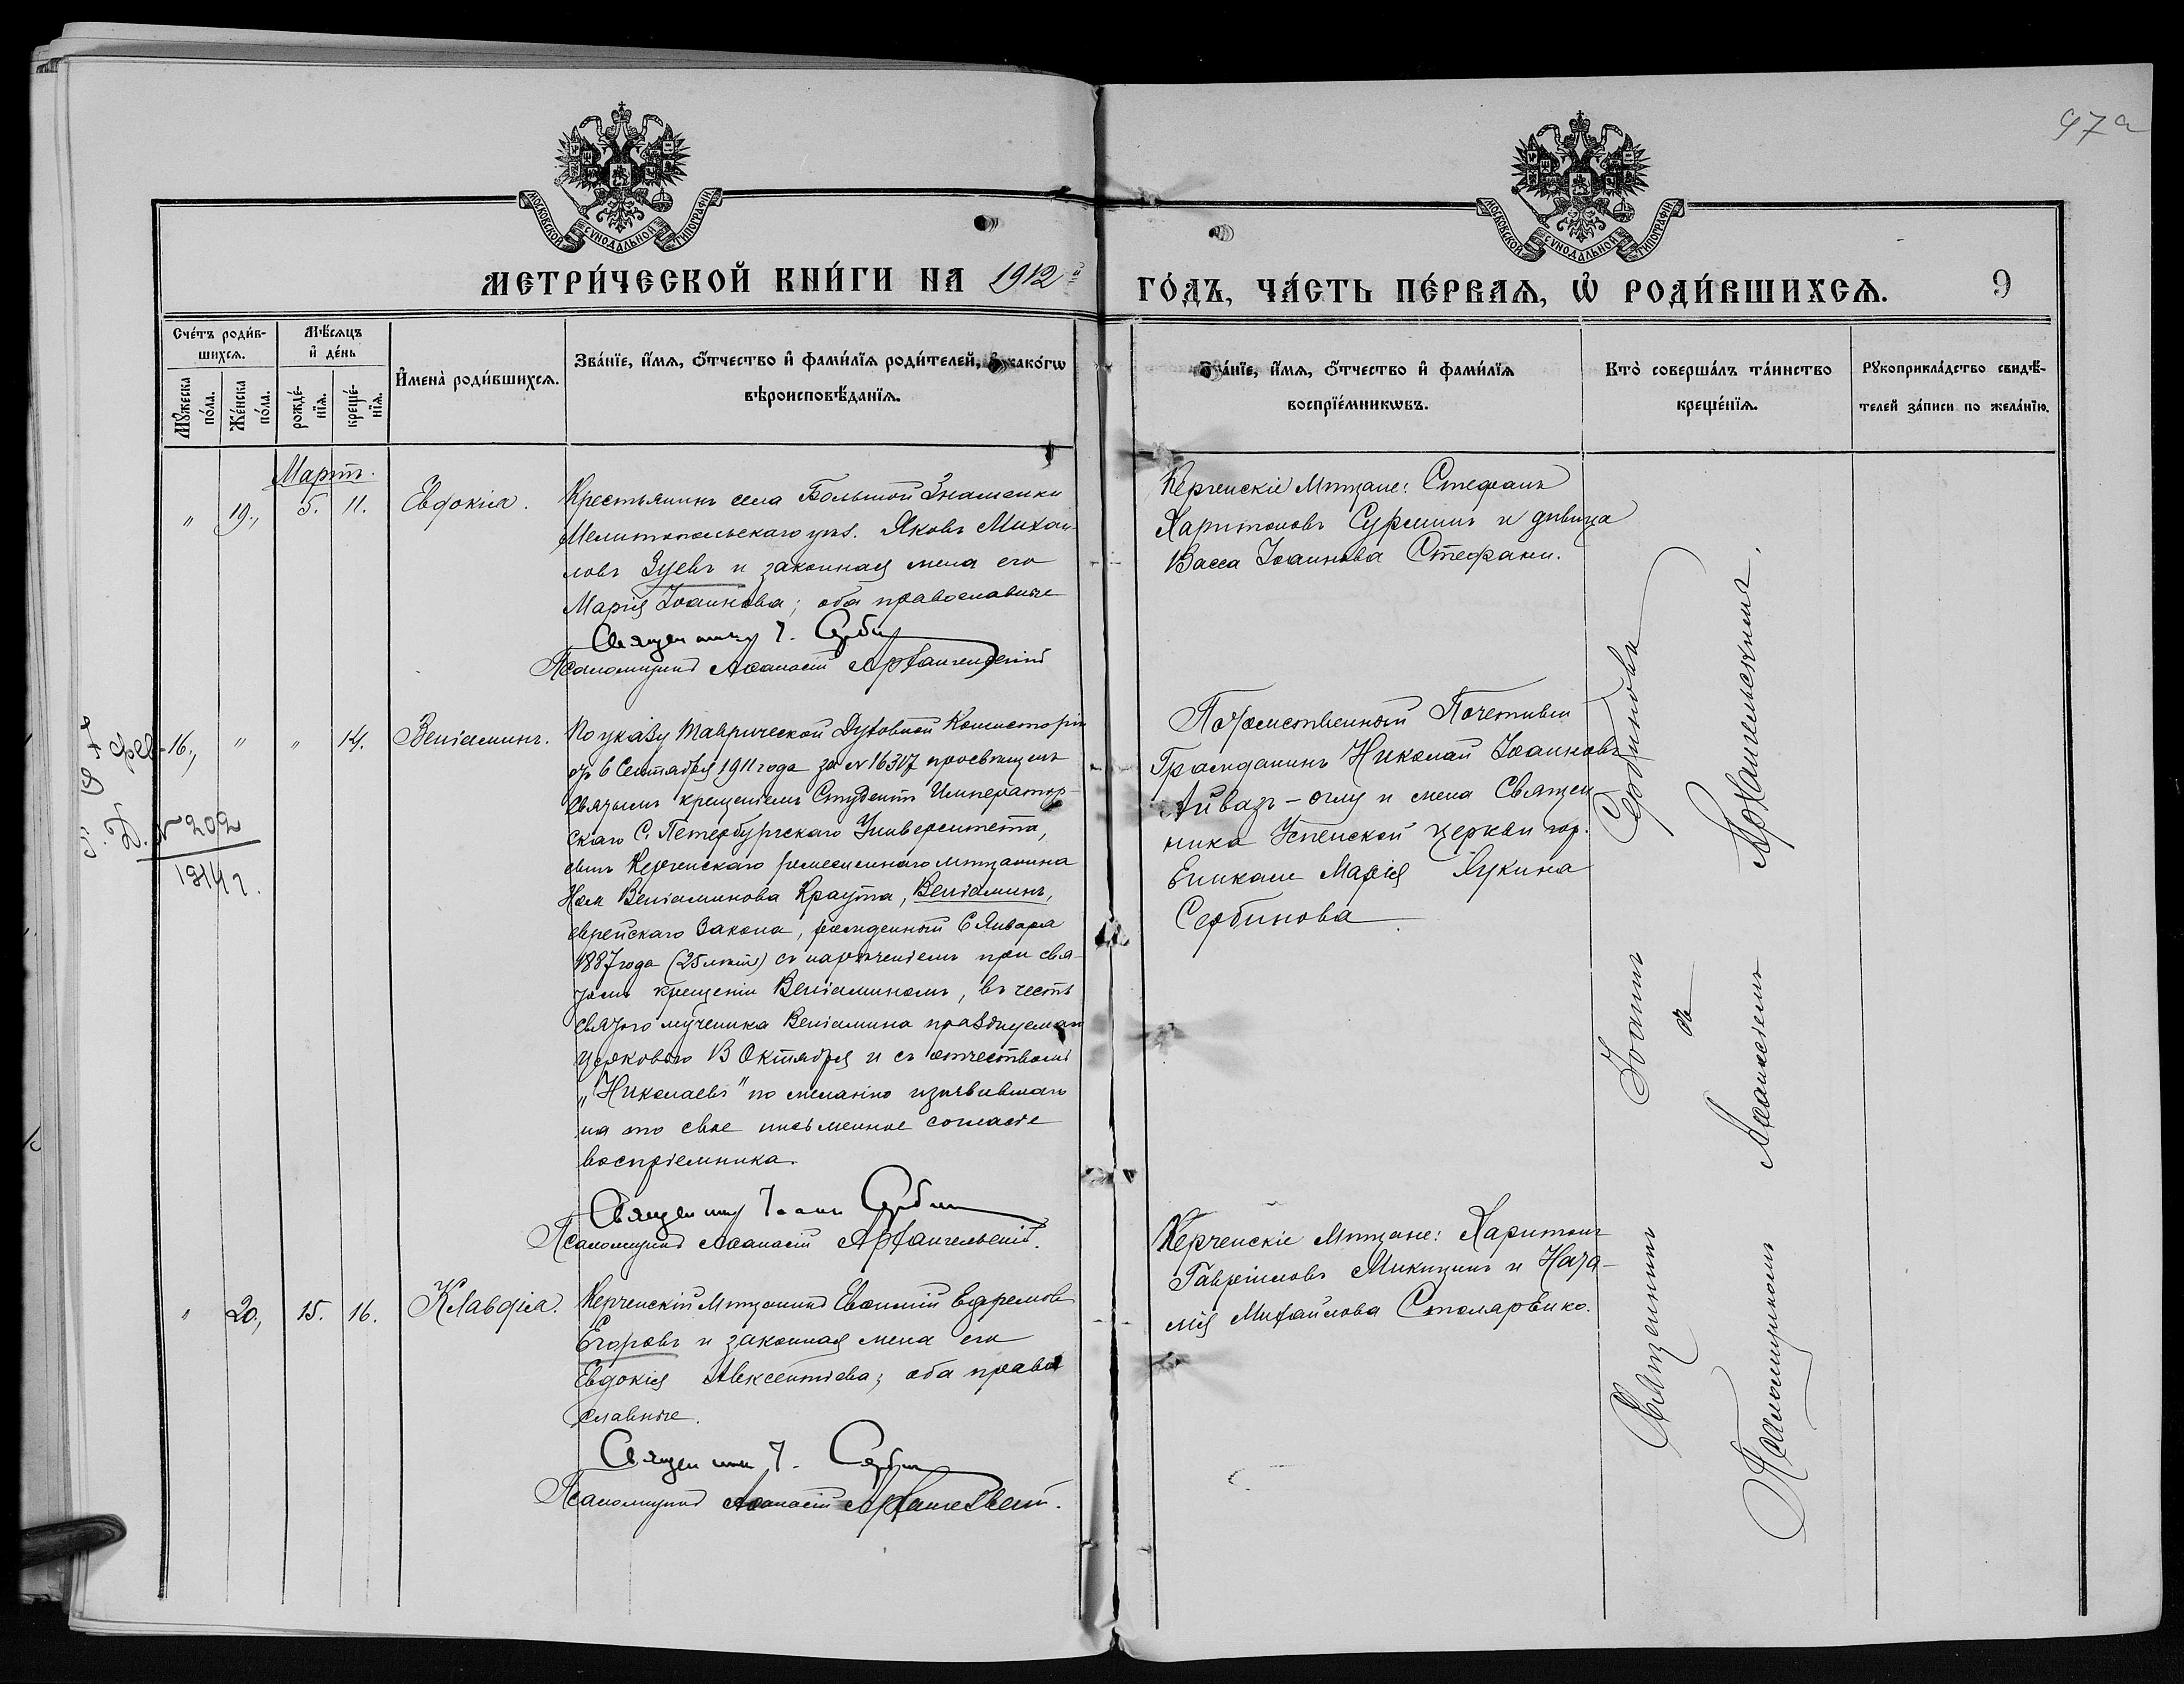 97а
МОСКОВСКОЙ СѴНОДАЛЬНОЙ ТИПОГРАФІИ
МОСКОВСКОЙ СѴНОДАЛЬНОЙ ТИПОГРАФІИ
МЕТРИ́ЧЕСКОЙ КНИ́ГИ НА 1912й
ГО́ДЪ, ЧА́СТЬ ПЕ́РВАѦ, Ѡ РОДИ́ВШИХСѦ. 9
Сче́тъ роди́в-
шихсѧ.
Мѣ́сѧцъ
и҆ де́нь
Мꙋ́жеска
по́ла.
Же́нска
по́ла.
рожде́-
нїѧ.
креще́-
нїѧ.
И҆мена̀ роди́вшихсѧ.
Зва́нїе, и҆́мѧ, ѻ҆́тчество и҆ фами́лїѧ роди́телей, и҆ како́гѡ
вѣроисповѣ́данїѧ.
Зва́нїе, и҆́мѧ, ѻ҆́тчество и҆ фами́лїѧ
воспрїе́мникѡвъ.
Кто̀ соверша́лъ та́инство
креще́нїѧ.
Рꙋкоприкла́дство свидѣ́-
телей за́писи по жела́нїю.
Мартъ.
" 19., 5. 11. Евдокіа.
Крестьянинъ села Большой Знаменки
Мелитопольскаго уѣз. Яковъ Михаи-
ловъ Зуевъ и законная жена его
Марія Іоаннова; оба православные
Священникъ І. Серби
Псаломщикъ Аѳанасій Архангельскій
Керченскіе Мѣщане: Стефанъ
Харитоновъ Сурминъ и дѣвица
Васса Іоаннова Стефани.
фев-16., " " 14. Веніаминъ.
Д. №202
1914 г.
По указу Таврической Духовной Консисторіи
отъ 6 Сентября 1911 года за №16317 просвѣщенъ
Святымъ крещеніемъ Студентъ Император-
скаго С. Петербургскаго Университета,
сынъ Керченскаго ремесленнаго мѣщанина
Ноя Веніаминова Краута, Веніаминъ,
еврейскаго Закона, рожденный 6 Января
1887 года (25 лѣтъ) съ нареченіемъ при свя-
томъ крещеніи Веніаминомъ, въ честь
Святого мученика Веніамина празднуемаго
Церковью 13 Октября и съ отчествомъ
"Николаевъ" по желанію изъявившаго
на то свое письменное согласіе
воспріемника.
Священникъ Іоаннъ Серби
Псаломщикъ Аѳанасій Архангельскій.
Потомственный Почетный
Гражданинъ Николай Іоанновъ
Айвазъ-оглу и жена Священ
ника Успенской церкви гор.
Еникале Марія Лукина
Сербинова
" 20., 15. 16. Клавдіа.
Керченскій Мѣщанинъ Евѳимій Ефремовъ
Егоровъ и законная жена его
Евдокія Авксентіева; оба право
славные.
Священникъ І. Серби
Псаломщикъ Аѳанасій Архангельскій.
Керченскіе Мѣщане: Харитонъ
Гавріиловъ Микицинъ и Ната-
лія Михайлова Столяренко.
Священникъ Іоаннъ Сербиновъ
съ
Псаломщикомъ Аѳанасіемъ Архангельскимъ.